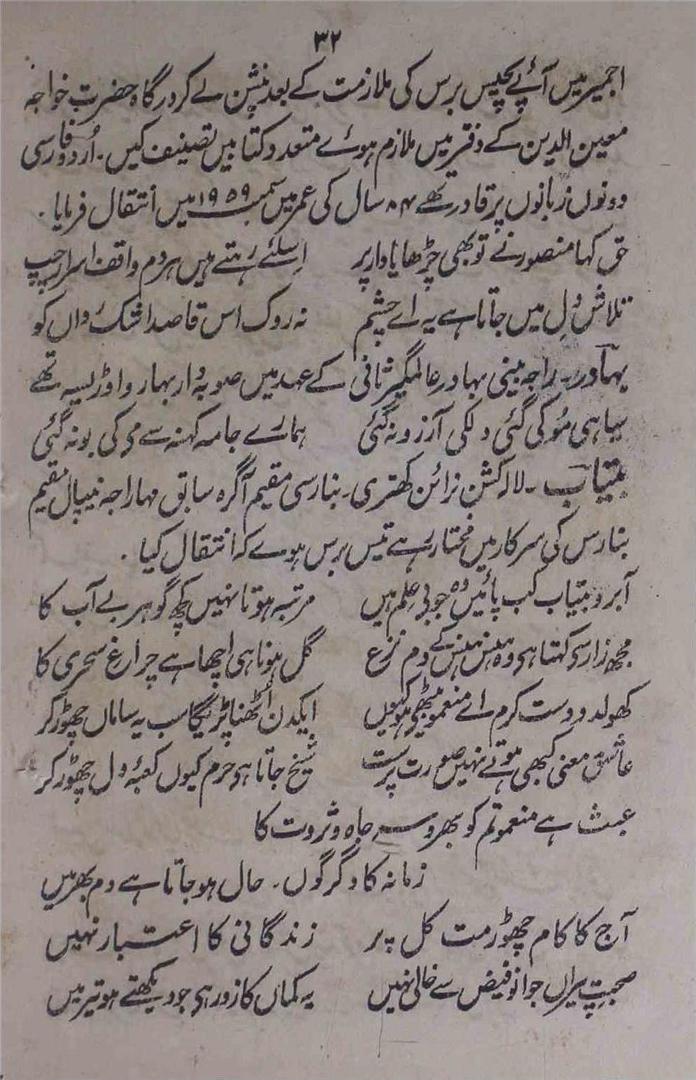 ۳۲
اجمیر میں آئے پچیس برس کی ملازمت کے بعد پنشن لے کر درگاہ حضرت خواجہ
معین الدین کے دفتر میں ملازم ہوئے متعدد کتابیں تصنیف کیں۔ اردو فارسی
دونوں زبانوں پر قادر تھے ۸۴ سال کی عمر میں سمبت ۱۹۵۹ میں انتقال فرمایا۔
حق کہا منصور نے تو بھی چڑھایا دار پر اسلئے رہتے ہیں ہردم واقف اسرار چپ
تلاش دل میں جاتا ہے یہ اے چشم نہ روک اس قاصد اشک رواں کو
بہادر۔ راجہ بینی بہادر عالمگیر ثانی کے عہد میں صوبہ دار بہار و اوڑیسہ تھے
سیاہی مو کی گئی دلکی آرزو نہ گئی ہمارے جامہ کہنہ سے می کی بو نہ گئی
بیتاب۔ لالہ کشن نرائن کھتری۔ بنارسی مقیم آگرہ سابق مہاراجہ نیپال مقیم
بنارس کی سرکار میں مختار رہے تیس برس ہوے کہ انتقال کیا۔
آبرو بیتاب کب پائیں وہ جو بی علم ہیں مرتبہ ہوتا نہیں کچھ گوہر بے آب کا
مجھ زار سی کہتا ہی وہ ہنس ہنس کے دم نزع گل ہونا ہی اچھا ہے چراغ سحری کا
کھولدو دست کرم اے منعمو بیٹھی ہو کیوں ایکدن اٹھنا پڑیگا سب یہ ساماں چھوڑ کر
عاشق معنی کبھی ہوتے نہیں صورت پرست شیخ جاتا ہی حرم کیوں کعبۂ دل چھوڑ کر
عبث ہے منعمو تم کو بھروسہ جاہ و ثروت کا
زمانہ کا دگرگوں۔ حال ہو جاتا ہے دم بھر میں
آج کا کام چھوڑ مت کل پر زندگانی کا اعتبار نہیں
صحبت پیراں جوانو فیض سے خالی نہیں یہ کماں کا زور ہی جو دیکھتے ہو تیر میں